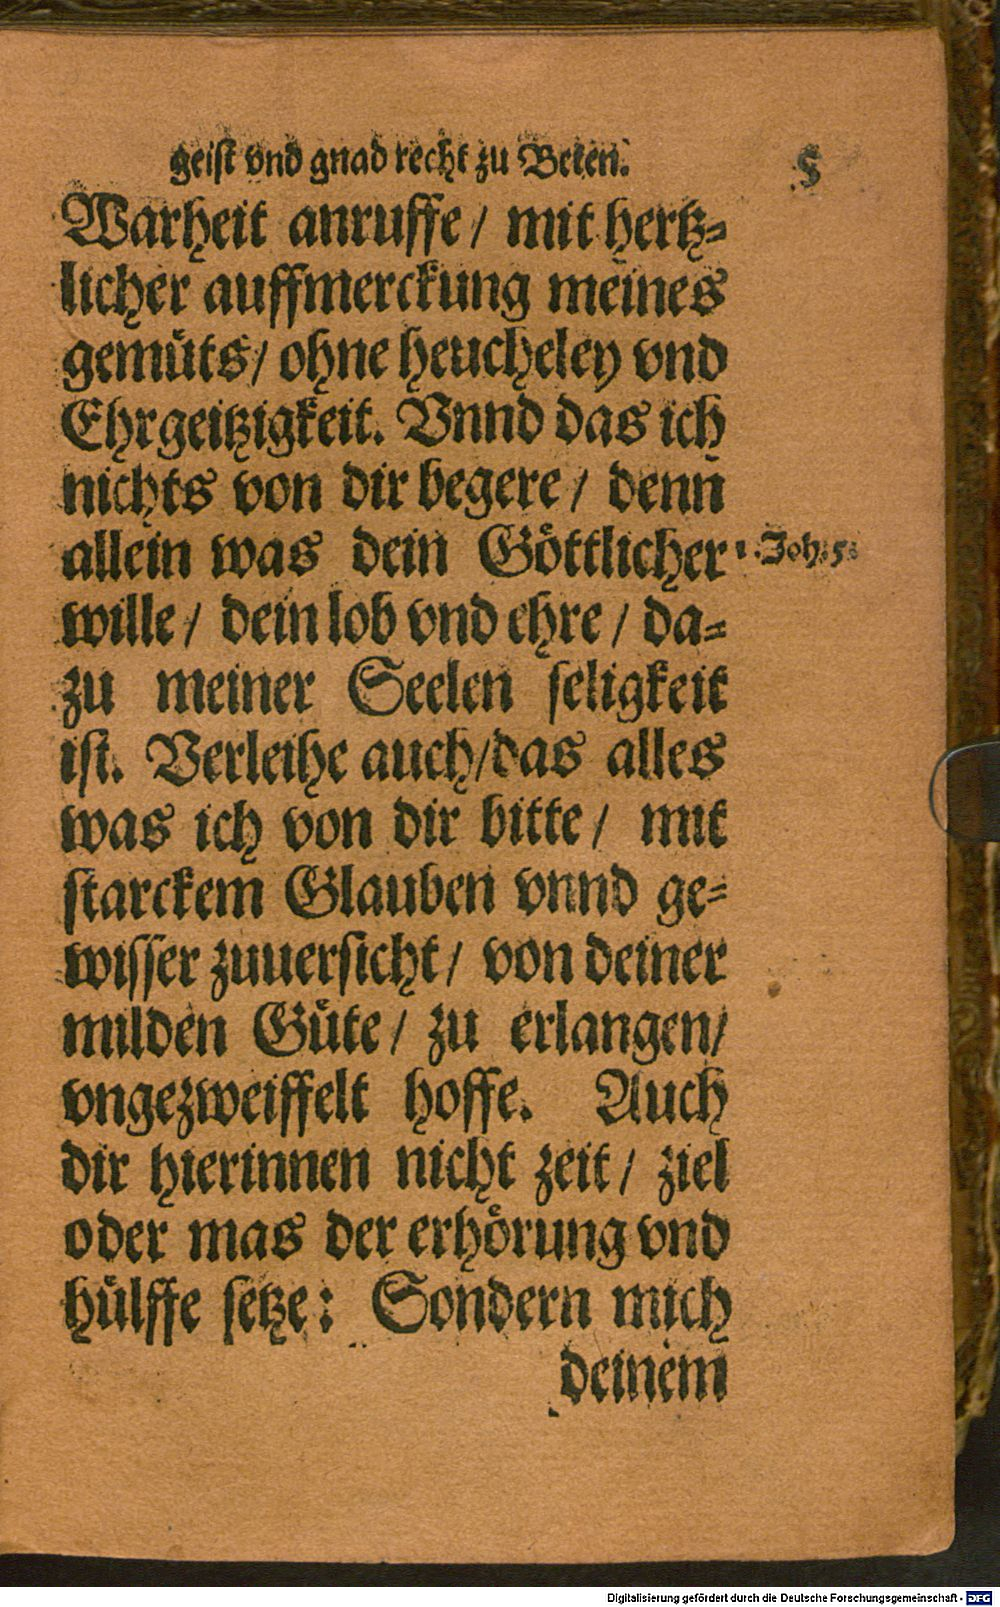 geist vnd gnad recht zu Beten. 5
Warheit anruffe/ mit hertz-
licher auffmerckung meines
gemüts/ ohne heucheley vnd
Ehrgeitzigkeit. Vnnd das ich
nichts von dir begere/ denn
allein was dein Göttlicher
1. Joh. 5.
wille/ dein lob vnd ehre/ da-
zu meiner Seelen seligkeit
ist. Verleihe auch/ das alles
was ich von dir bitte/ mit
starckem Glauben vnnd ge-
wisser zuuersicht/ von deiner
milden Güte/ zu erlangen/
vngezweiffelt hoffe. Auch
dir hierinnen nicht zeit/ ziel
oder mas der erhörung vnd
hülffe setze: Sondern mich
deinem
Digitalisierung gefördert durch die Deutsche Forschungsgemeinschaft - DFG